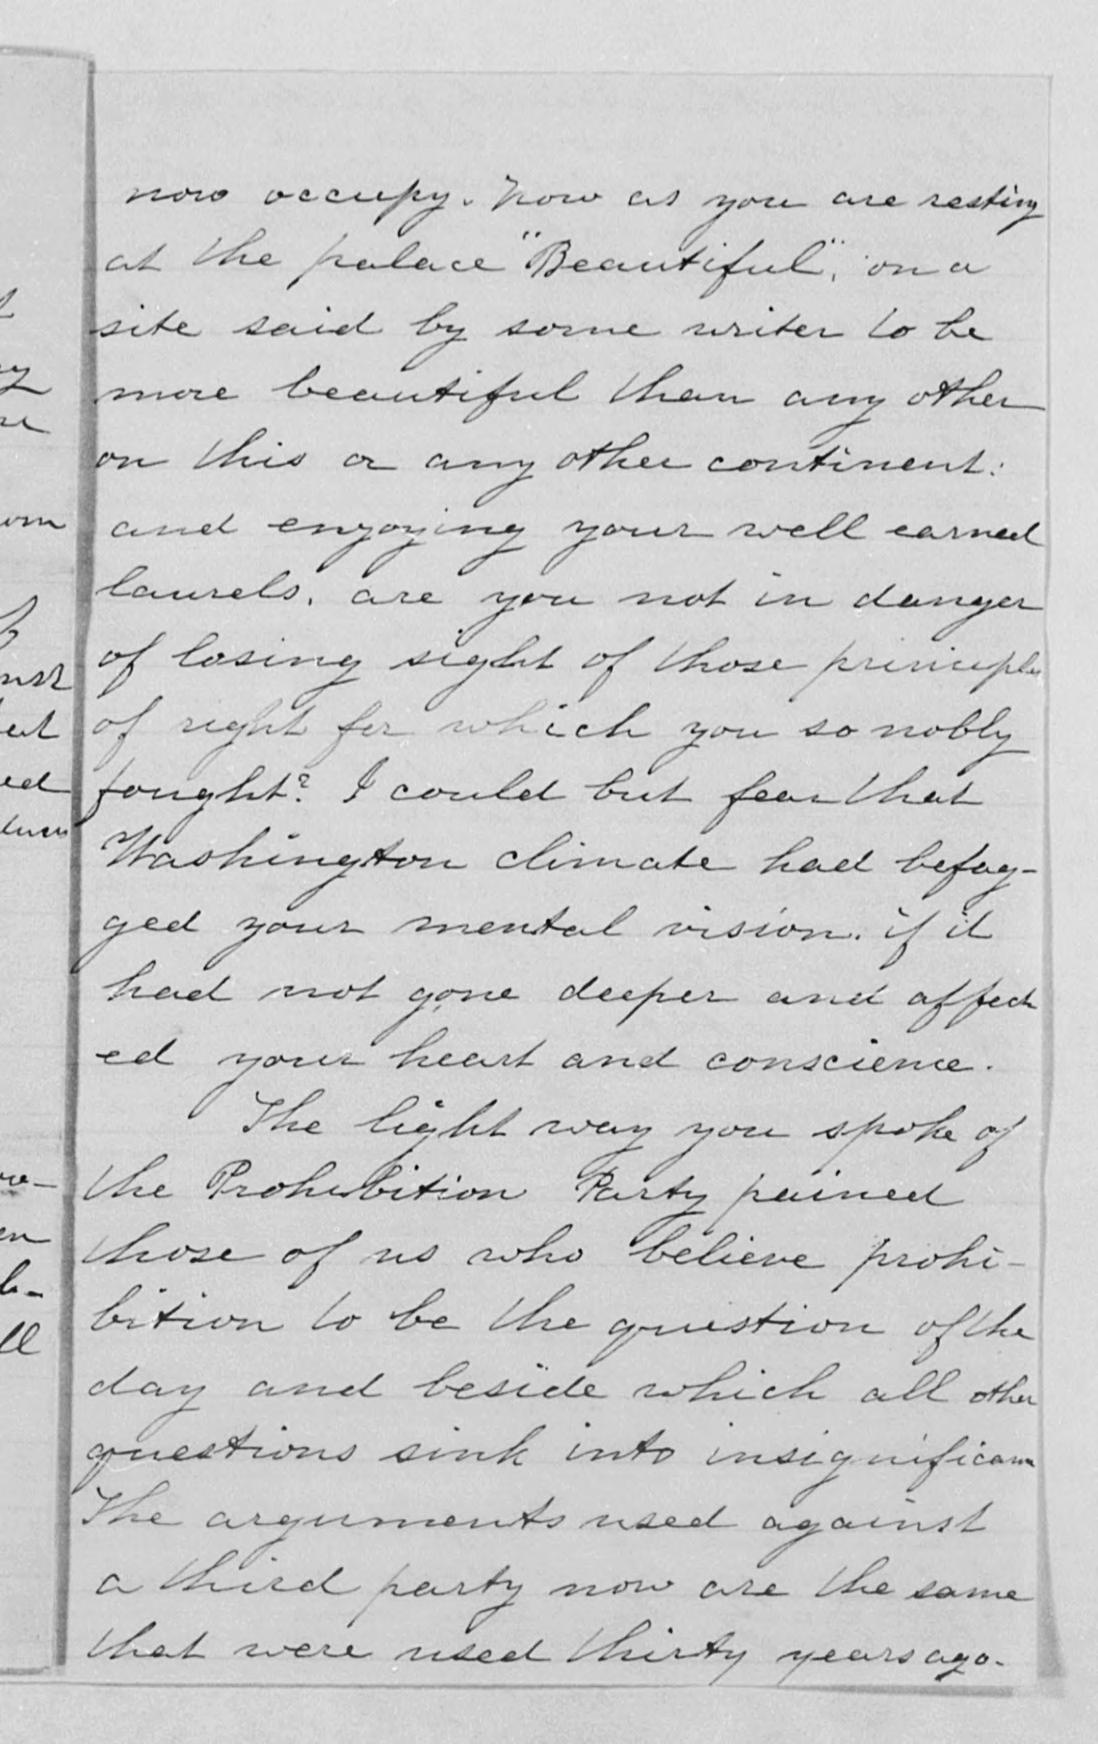 now occupy. Now as you are resting
at the palace "Beautiful", on a
site said by some writer to be
more beautiful than any other
on this or any other continent:
and enjoying your well earned
laurels, are you not in danger
of losing sight of those principles
of right for which you so nobly
fought? I could but fear that
Washington climate had befog-
ged your mental vision. if it
had not gone deeper and affect
ed your heart and conscience.
The light way you spoke of
the Prohibition Party pained
those of us who believe prohi-
bition to be the question of the
day and beside which all other
questions sink into insignificance
The arguments used against
a third party now are the same
that were used thirty years ago.